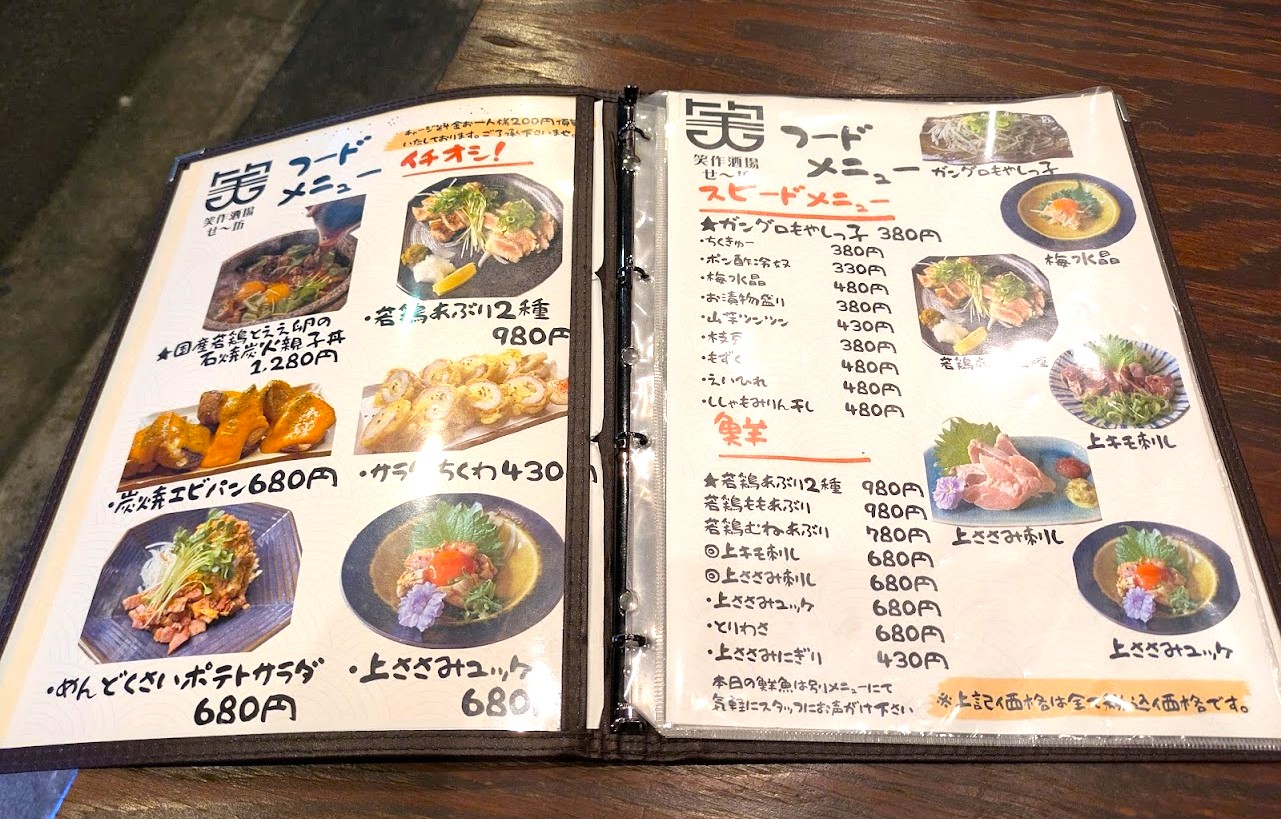 笑作酒場
せ〜坊
フードメニュー
チャージ料金お一人様200円頂
いたしております。ご了承下さいませ
イチオシ!
★国産若鶏とええ卵の
石焼炭火親子丼
1.280円
・若鶏あぶり2種
980円
・炭焼エビパン680円
・サラ ちくわ430円
・めんどくさいポテトサラダ
680円
・上ささみユッケ
680
笑作酒場
せ〜坊
フード
メニュー
ガングロもやしっ子
スピードメニュー
★ガングロもやしっ子 380円
・ちくきゅー 380円
・ポン酢冷奴 330円
・梅水晶 480円
・お漬物盛り 380円
・山芋ツンツン 430円
・枝豆 380円
・もずく 480円
・えいひれ 480円
・ししゃもみりん干し 480円
梅水晶
若鶏
上キモ刺し
鮮
★若鶏あぶり2種 980円
若鶏ももあぶり 980円
若鶏むねあぶり 780円
◎上キモ刺し 680円
◎上ささみ刺し 680円
・上ささみユッケ 680円
・とりわさ 680円
・上ささみにぎり 430円
上ささみ刺し
上ささみユッケ
本日の鮮魚は別メニューにて
気軽にスタッフにお声がけ下さい
※上記価格は全て税込価格です。